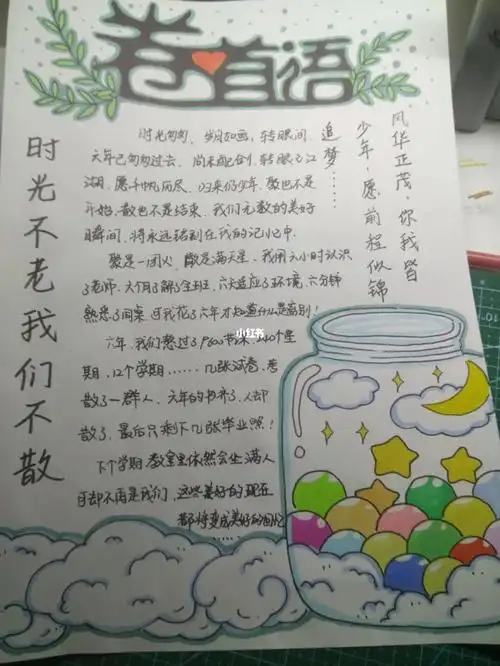 卷首语
时光不老我们不散
时光匆匆，岁月如画，转眼间，
六年已匆匆过去，尚未配创，转眼已江
湖，愿千帆历尽，归来仍少年，聚也不是
开始，散也不是结束，我们无数的美好
瞬间，将永远铭刻在我的记心中。
聚是一团火，散是满天星，我用六小时认识
了老师，六个月了解了全班，六天适应了环境，六分钟
熟悉了同桌，可我花了六年才知道什么是离别！
六年，我们熬过了
期，12个学期……几张试卷，考
散了一群人，六年的书齐了，人却
散了，最后只剩下几张毕业照！
下个学期教室里依然会坐满人
可却不再是我们，这些美好的现在
都将变成美好的回忆
追梦……
少年，愿前程似锦
风华正茂，你我皆
小红书